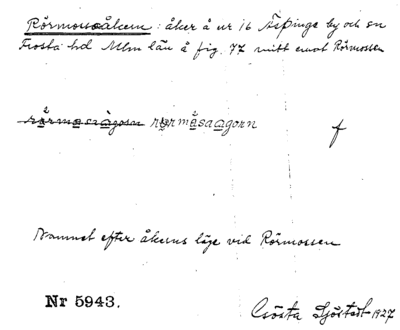 Rörmossåkern : åker å nr 16 Äspinge by och sn
Frosta hd Mlm län å fig. 77 mitt emot Rörmossen
rörmåsaagorn f
Namnet efter åkerns läge vid Rörmossen
Nr 5943.
Gösta Sjöstedt 1927